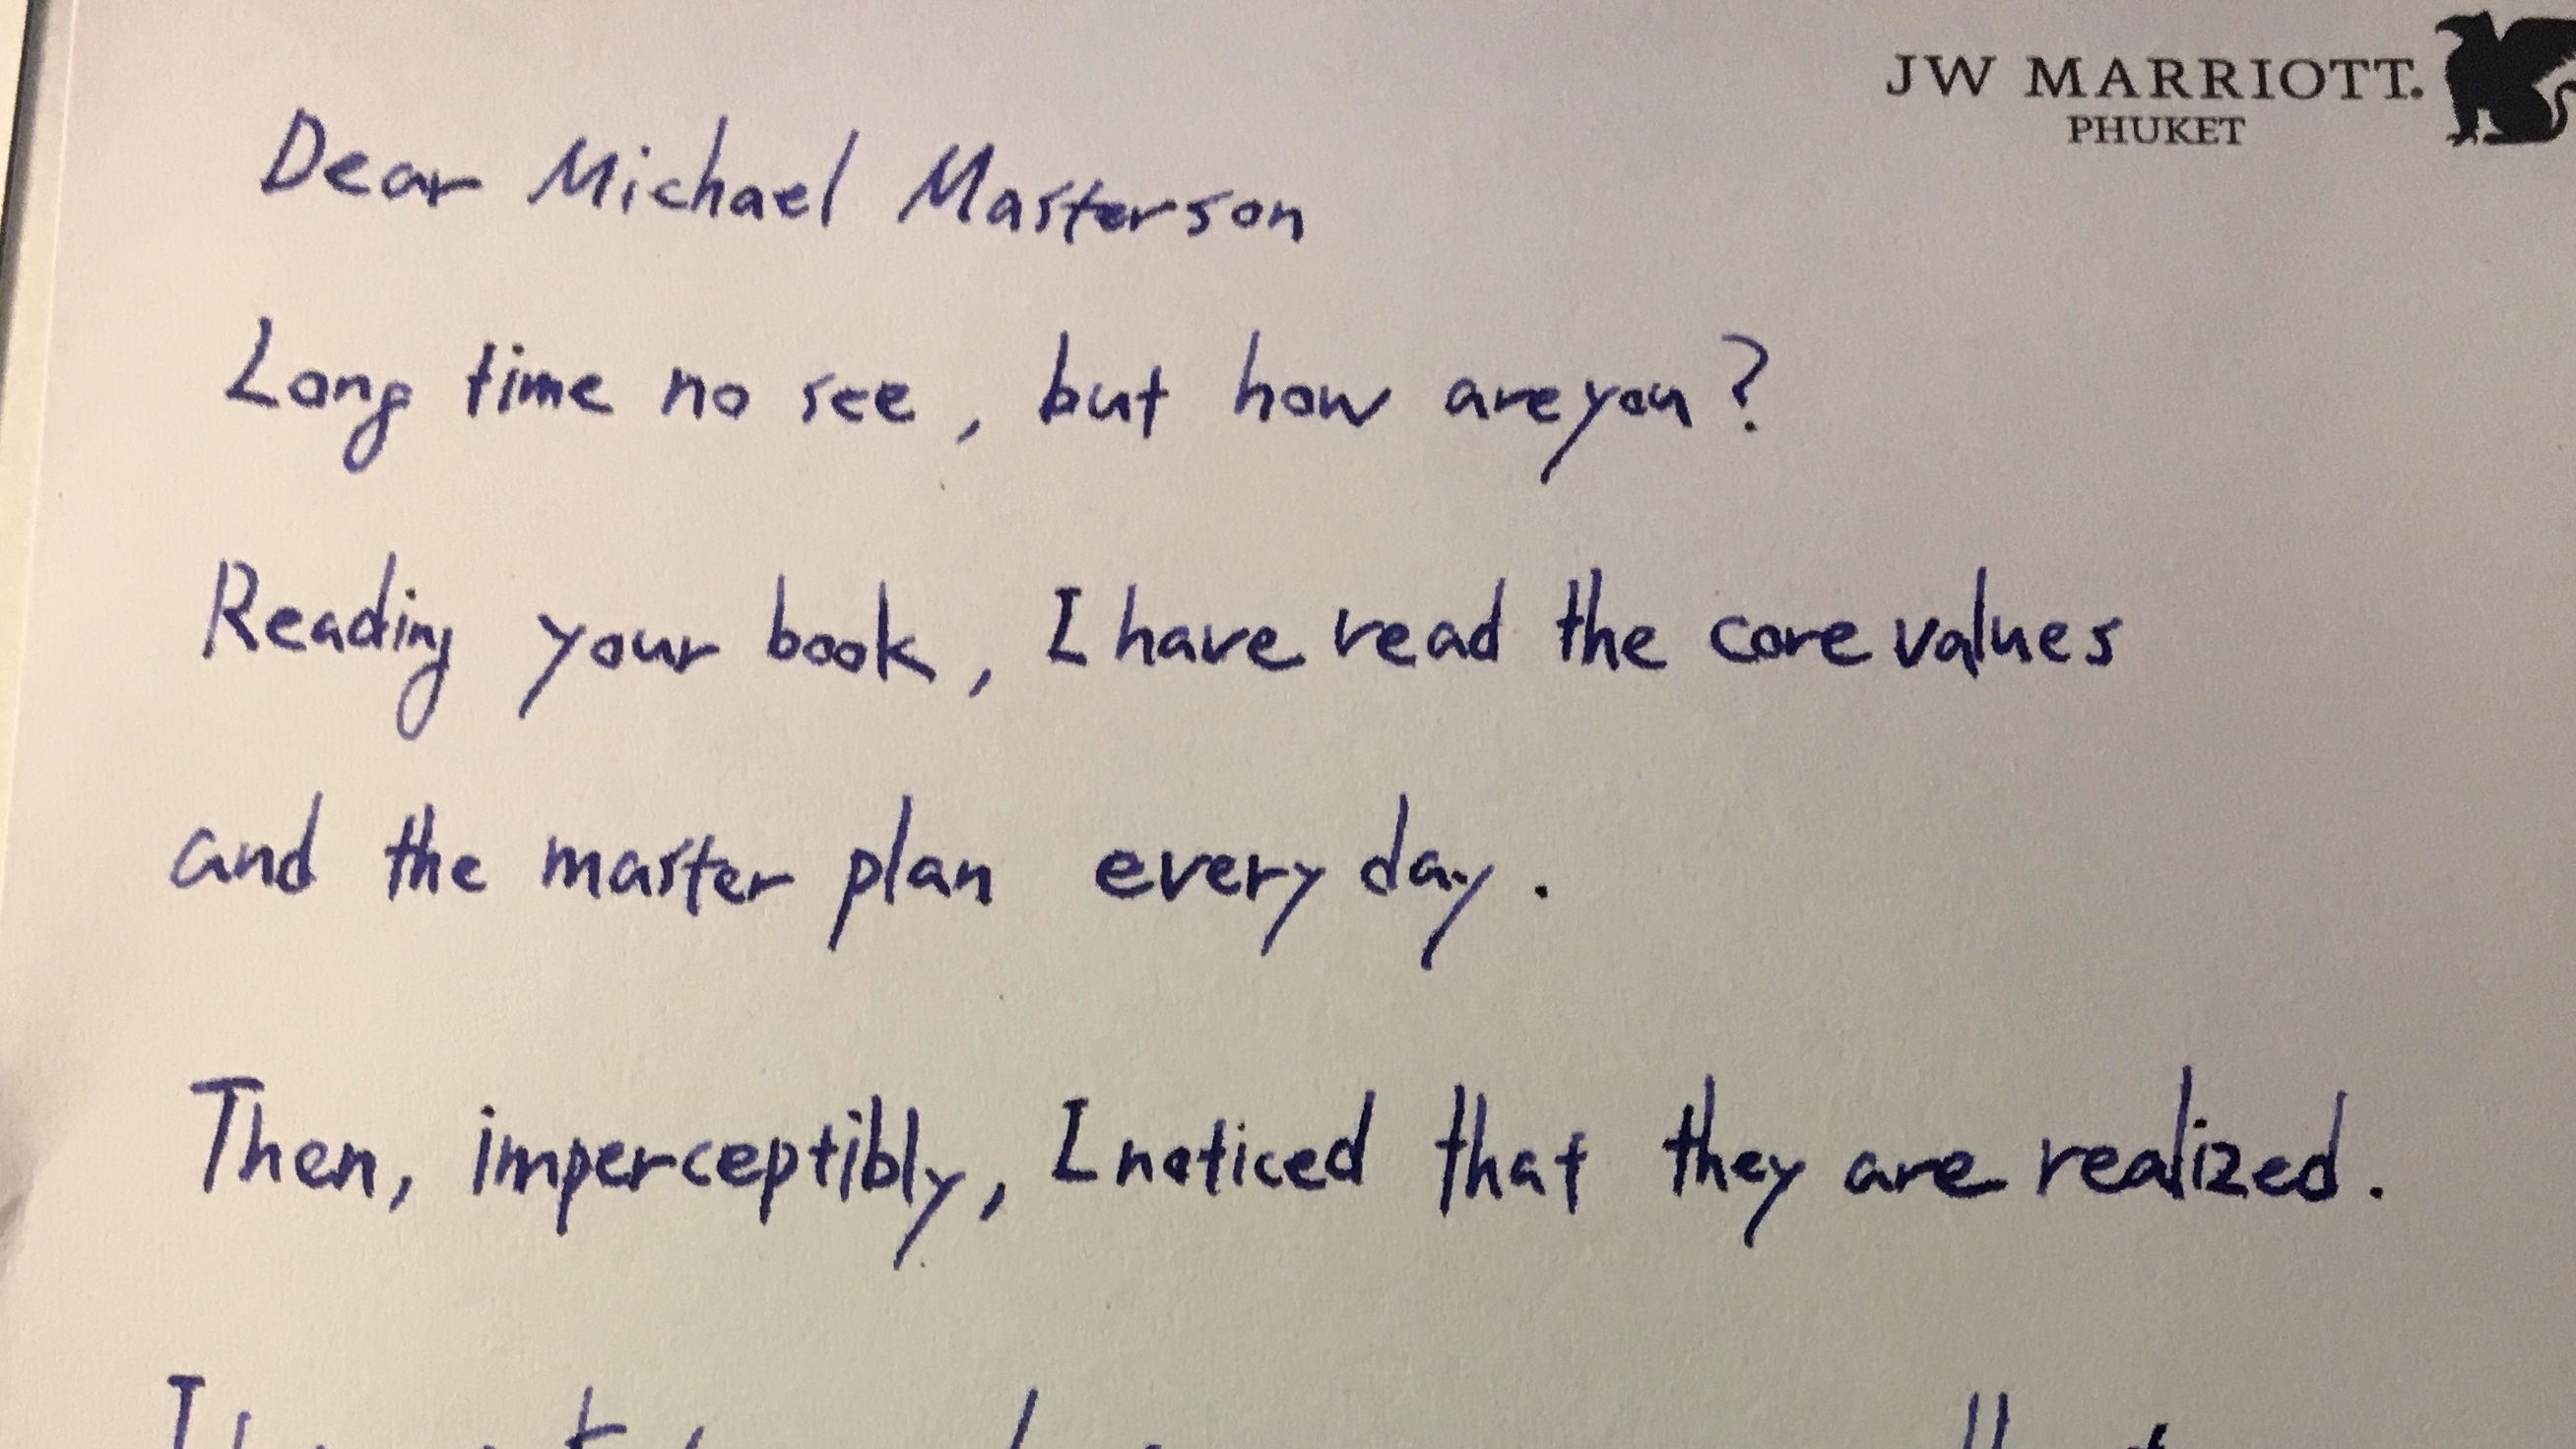 JW MARRIOTT.
PHUKET
Dear Michael Masterson
Long time no see, but how are you?
Reading your book, I have read the core values
and the master plan every day.
Then, imperceptibly, I noticed that they are realized.